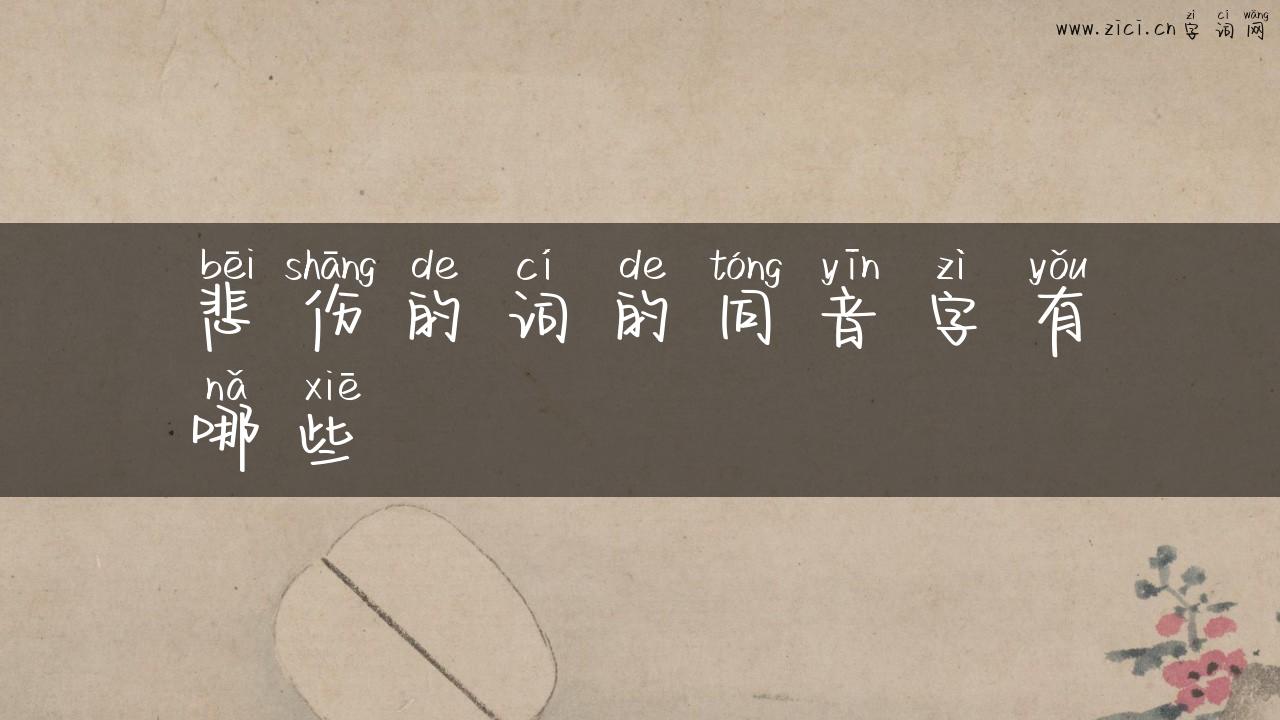 zì cí wǎng
www.zici.cn字词网
bēi shāng de cí de tóng yīn zì yǒu
悲伤的词的同音字有
nǎ xiē
哪些